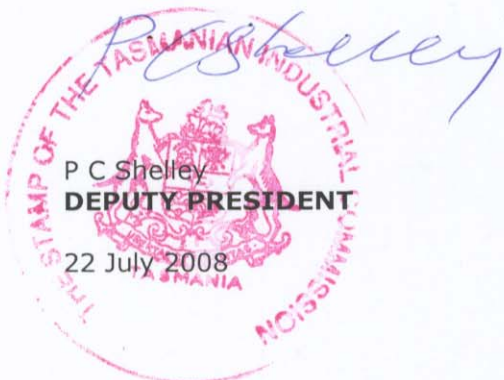 P C Shelley
THE STAMP OF THE TASMANIAN INDUSTRIAL COMMISSION
P C Shelley
DEPUTY PRESIDENT
22 July 2008
TASMANIA